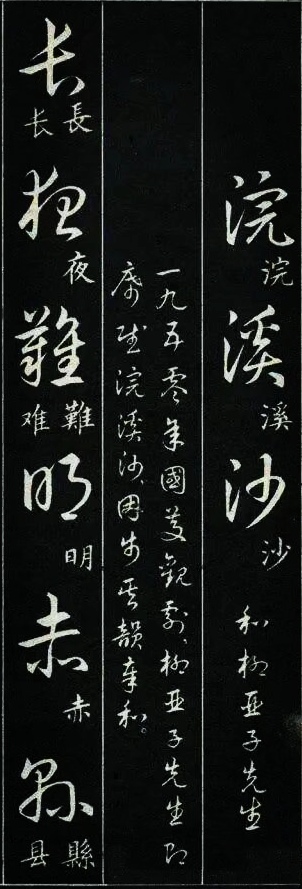 浣溪沙 和柳亚子先生
浣溪沙
一九五零年國慶觀劇，柳亚子先生即
席赋浣溪沙，因步其韻奉和。
长夜難明赤縣
長夜難明赤縣
长难县